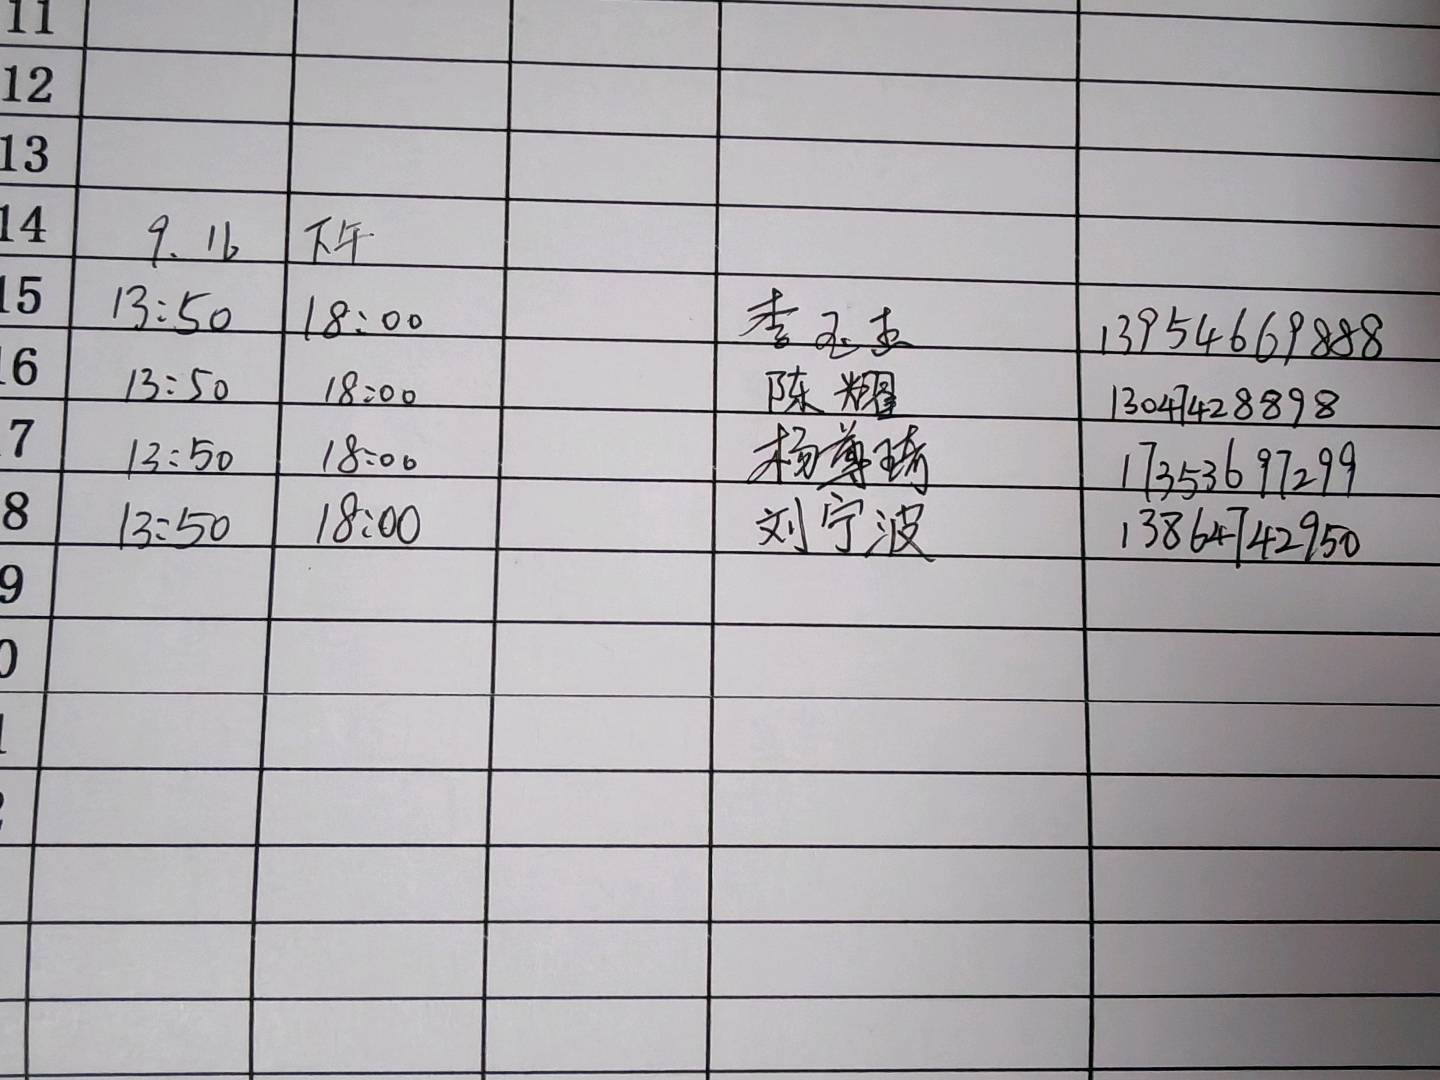 11
12
13
14 9.16 下午
15 13:50 18:00 李玉杰 13954669888
16 13:50 18:00 陈耀 13047428898
7 13:50 18:00 杨尊琦 17353697299
8 13:50 18:00 刘宁波 13864742950
9
0
1
2